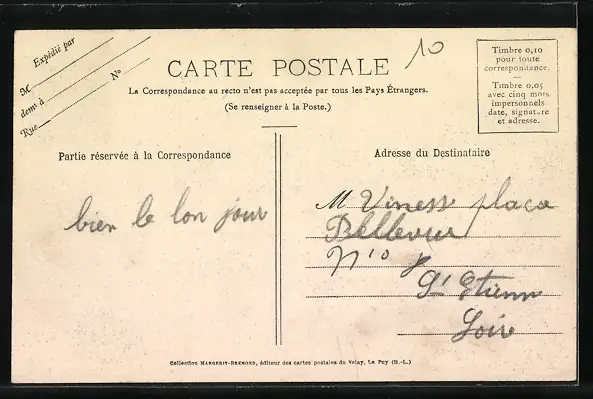 Expédié par
M
demt à
Rue
No
CARTE POSTALE
La Correspondance au recto n'est pas acceptée par tous les Pays Étrangers.
(Se renseigner à la Poste.)
10
Timbre 0,10
pour toute
correspondance.
Timbre 0,05
avec cinq mots
impersonnels
date, signature
et adresse.
Partie réservée à la Correspondance
bien le bon jour
Adresse du Destinataire
M Viness place
Bellevue
No
St Etienne
Loire
Collection MARGERIT-BREMOND, éditeur des cartes postales du Velay, Le Puy (H.-L.)